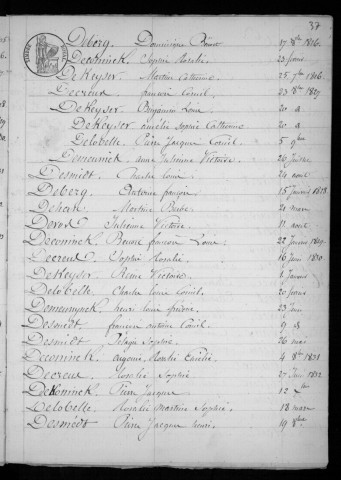 37
Deberg, Dominique Benoit 17 8bre 1816.
Deconinck, Sophie Rosalie 23 
DeKeyser Martine Catherine 25 7bre 1816.
Decreux François Louis. 23 8bre 1817.
DeKeyser Benjamin Louis 20 a
DeKeyser amélie Sophie Catherine 20 a
Delobelle Pierre Jacques Cornil. 5 9bre
Demeuninck, anne Julienne Victoire. 26 
Desmidt Charles Louis. 24 aout
Deberg, Antoine françois 15 janvier 1818.
Dehaek Martine Barbe 20 mars
Julienne Victoire. 11 aout
Deconinck, Benoit françois Louis. 22 janvier 1819.
Decreux Sophie Rosalie. 16 juin 1820
DeKeyser Reine Victoire. 1 janvier
Delobelle Charles Louis Cornil. 20 janvier
Demeunynck, henri Louis 23 juin
Desmidt, françois antoine Cornil. 9
Desmidt Pélagie Sophie. 26 mai
Deconinck, Rosalie Emélie. 4 8bre 1821
Decreux Rosalie Sophie 27 juin 1822
DeKoninck, Pierre Jacques 12 Xbre
Delobelle Rosalie Martine Sophie. 18 mars
Desmidt Pierre Jacques henri. 19 8bre